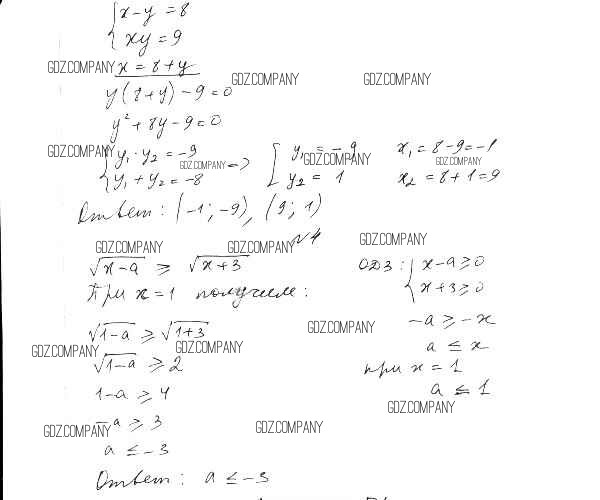 x - y = 8
xy = 9
GDZ.COMPANY x = 8 + y GDZ.COMPANY GDZ.COMPANY
y(8+y) - 9 = 0
y² + 8y - 9 = 0
GDZ.COMPANY y₁ · y₂ = -9 GDZ.COMPANY => y₁ = -9 GDZ.COMPANY x₁ = 8 - 9 = -1 GDZ.COMPANY
y₁ + y₂ = -8 y₂ = 1 x₂ = 8 + 1 = 9
Ответ: (-1; -9), (9; 1)
GDZ.COMPANY GDZ.COMPANY №4 GDZ.COMPANY
√x-a ≥ √x+3 ОДЗ: x-a ≥ 0
При x = 1 получаем: x+3 ≥ 0
√1-a ≥ √1+3 GDZ.COMPANY -a ≥ -x
GDZ.COMPANY √1-a ≥ 2 GDZ.COMPANY a ≤ x
при x = 1
1-a ≥ 4 a ≤ 1
GDZ.COMPANY
GDZ.COMPANY -a ≥ 3 GDZ.COMPANY
a ≤ -3
Ответ: a ≤ -3